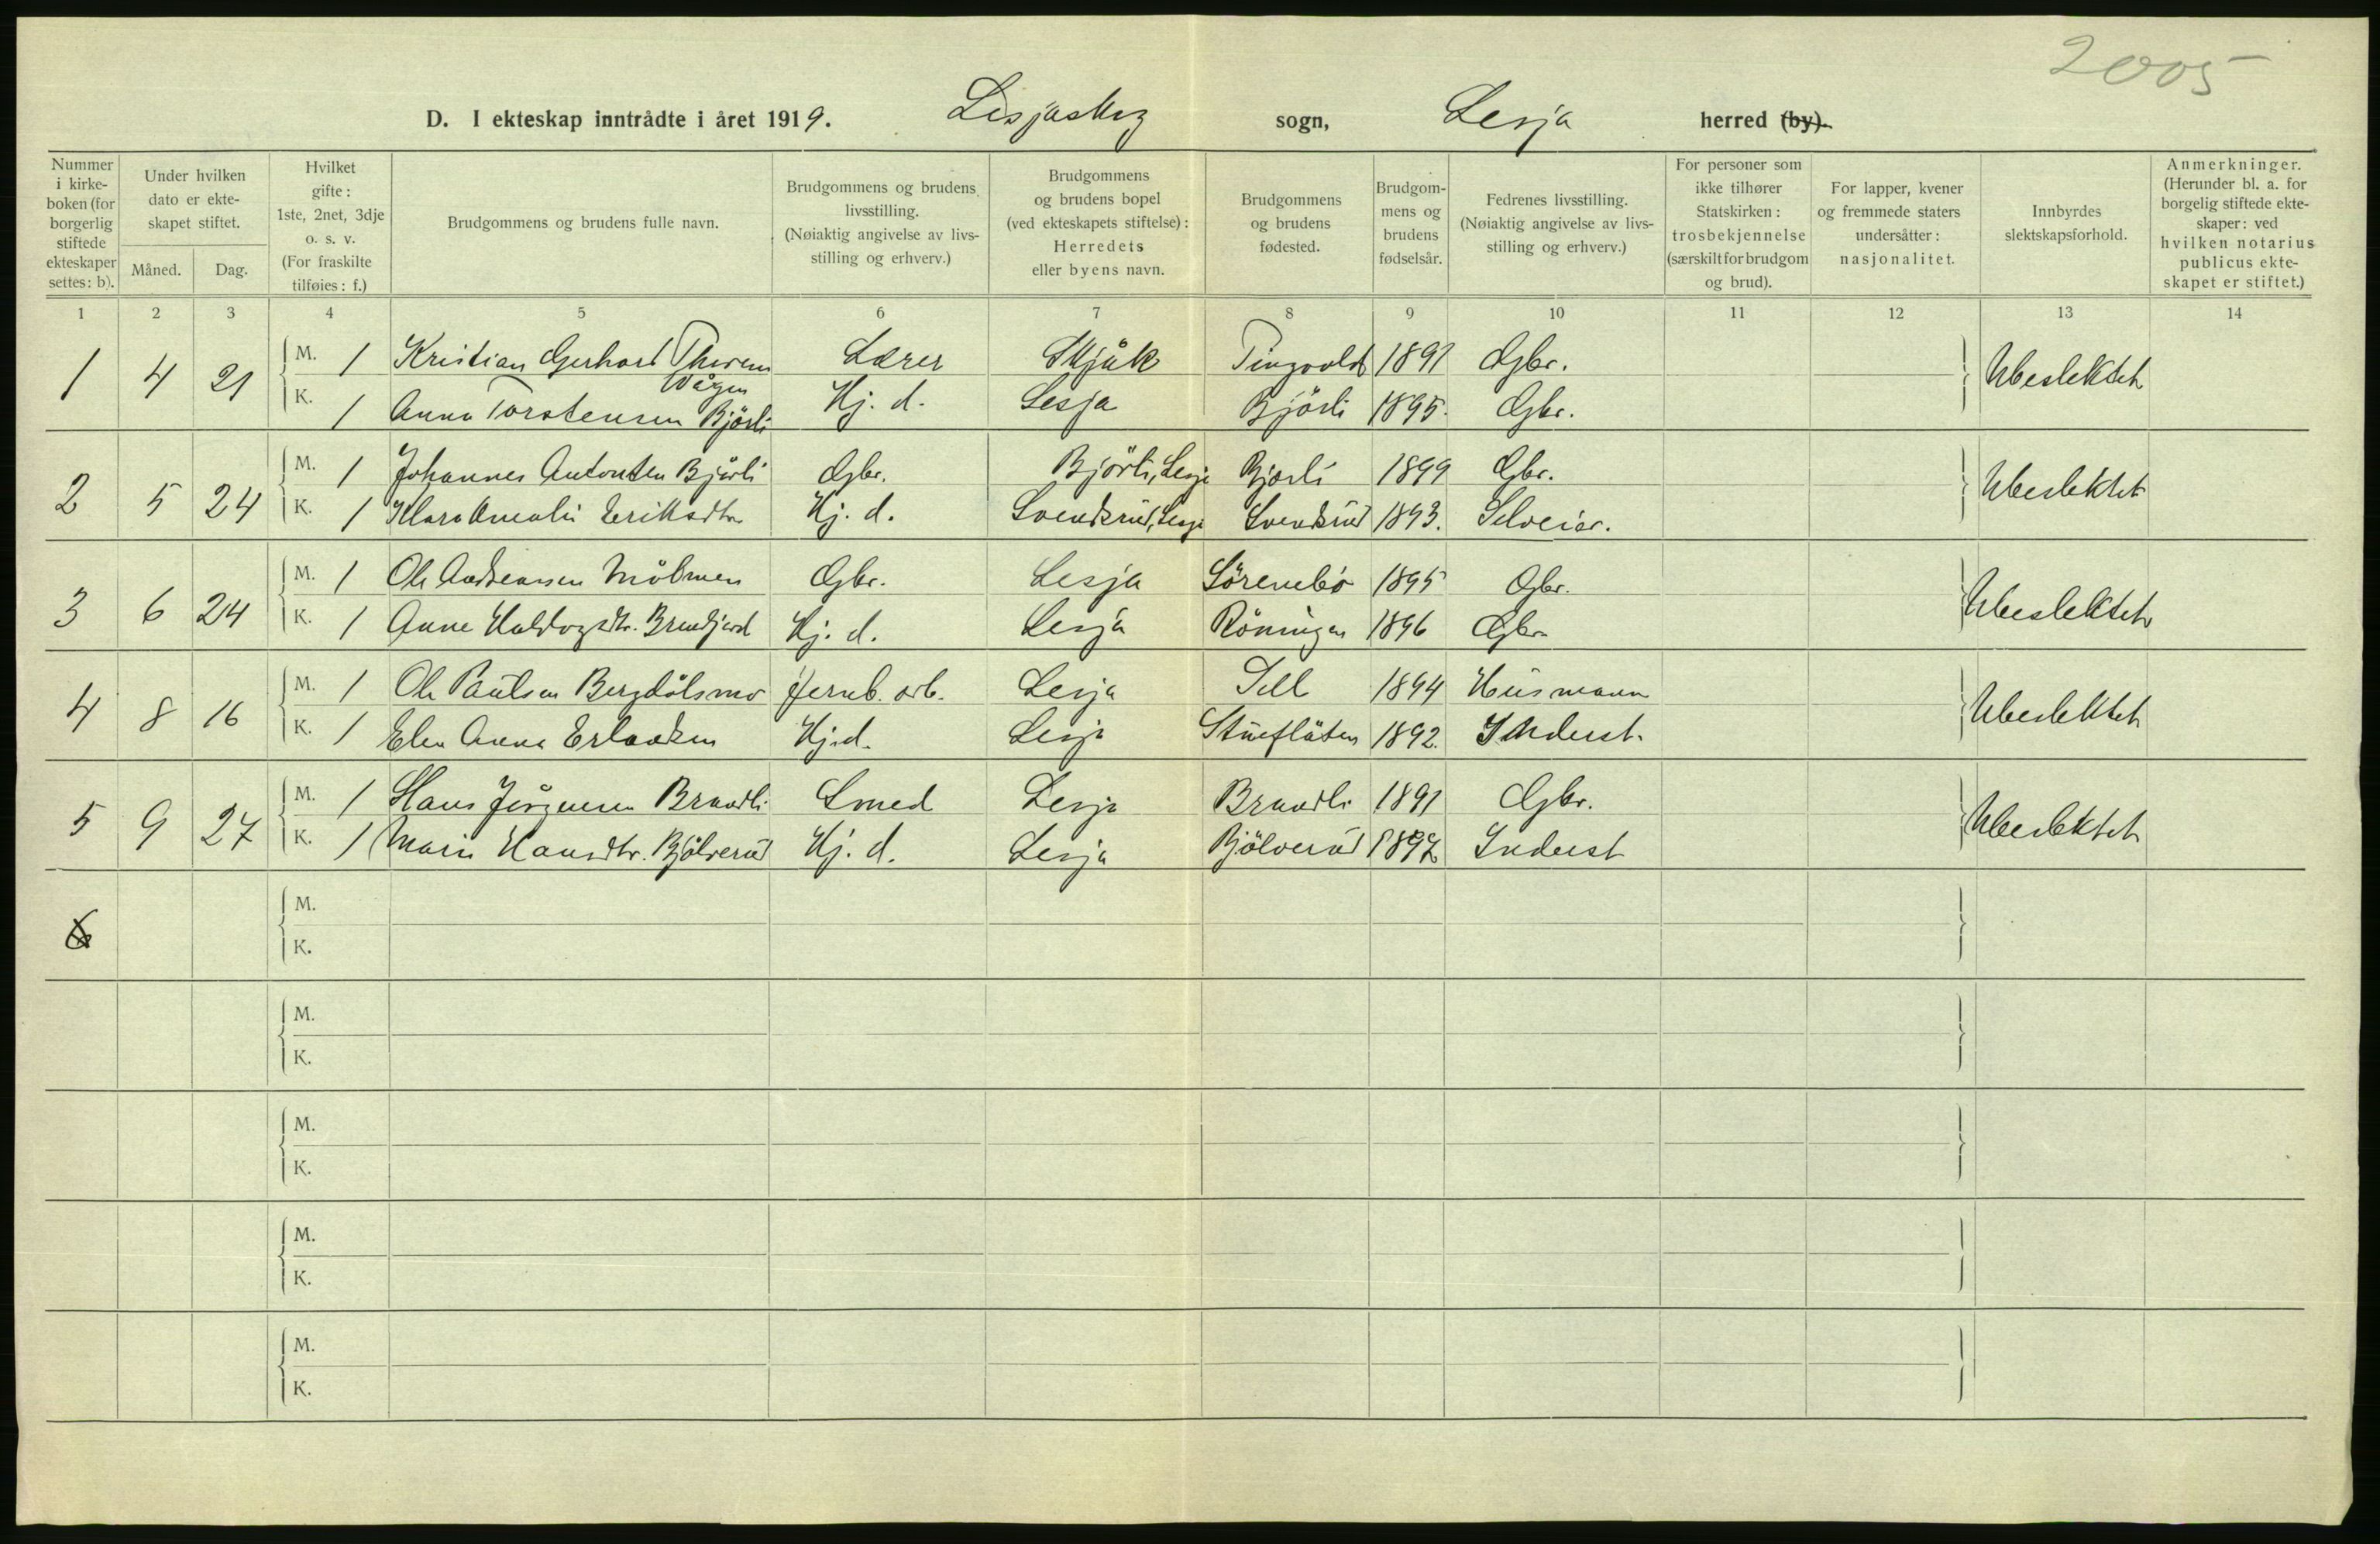 2005
D. I ekteskap inntrådte i året 1919. Lesjaskog sogn, Lesja herred (by).
Nummer i kirke-boken (for borgerlig stiftede ekteskaper settes: b).
Under hvilken dato er ekte-skapet stiftet.
Måned. Dag.
Hvilket gifte: 1ste, 2net, 3dje o. s. v. (For fraskilte tilføies: f.)
Brudgommens og brudens fulle navn.
Brudgommens og brudens livsstilling. (Nøiaktig angivelse av livs-stilling og erhverv.)
Brudgommens og brudens bopel (ved ekteskapets stiftelse): Herredets eller byens navn.
Brudgommens og brudens fødested.
Brudgom-mens og brudens fødselsår.
Fedrenes livsstilling. (Nøiaktig angivelse av livs-stilling og erhverv.)
For personer som ikke tilhører Statskirken: trosbekjennelse (særskilt for brudgom og brud).
For lapper, kvener og fremmede staters undersåtter: nasjonalitet.
Innbyrdes slektskapsforhold.
Anmerkninger. (Herunder bl. a. for borgelig stiftede ekte-skaper: ved hvilken notarius publicus ekte-skapet er stiftet.)
1 2 3 4 5 6 7 8 9 10 11 12 13 14
1 4 21 M. 1 Kristian Gerhart Lærer Skjåk Tingvold 1891 Gbr. Ubeslektet
Vågen
K. 1 Anna Torstensen Bjørli Hj. d. Lesja Bjørli 1895. Gbr.
2 5 24 M. 1 Johannes Antonsen Bjørli Gbr. Bjørli, Lesja Bjorli 1899 Gbr. Ubeslektet
K. 1 Klara Amalie Eriksdtr Hj. d. Svendsrud, Lesja Svendsrud 1893. Selveier.
3 6 24 M. 1 Ole Andreassen Mølmen Gbr. Lesja Sørenebø 1895 Gbr. Ubeslektet
K. 1 Anne Haldogsdtr. Hj. d. Lesja Röningen 1896 Gbr.
4 8 16 M. 1 Ole Paulsen Bergdølsmo Jernb. arb. Lesja Sell 1894 Husmann Ubeslektet
K. 1 Elen Anna Erlandsen Hj. d. Lesja Stueflåten 1892. Inderst.
5 9 27 M. 1 Hans Jörgensen Brandli Smed Lesja Brandli 1891 Gbr. Ubeslektet
K. 1 Marie Hansdtr. Bjölverud Hj. d. Lesja Bjölverud 1897 Inderst
6 M.
K.
M.
K.
M.
K.
M.
K.
M.
K.